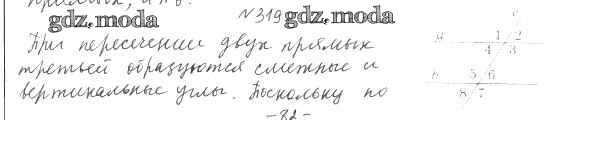 №319
gdz.moda gdz.moda
При пересечении двух прямых
третьей образуются смежные и
вертикальные углы. Поскольку по
-82-
c
a 1 2
4 3
b 5 6
8 7